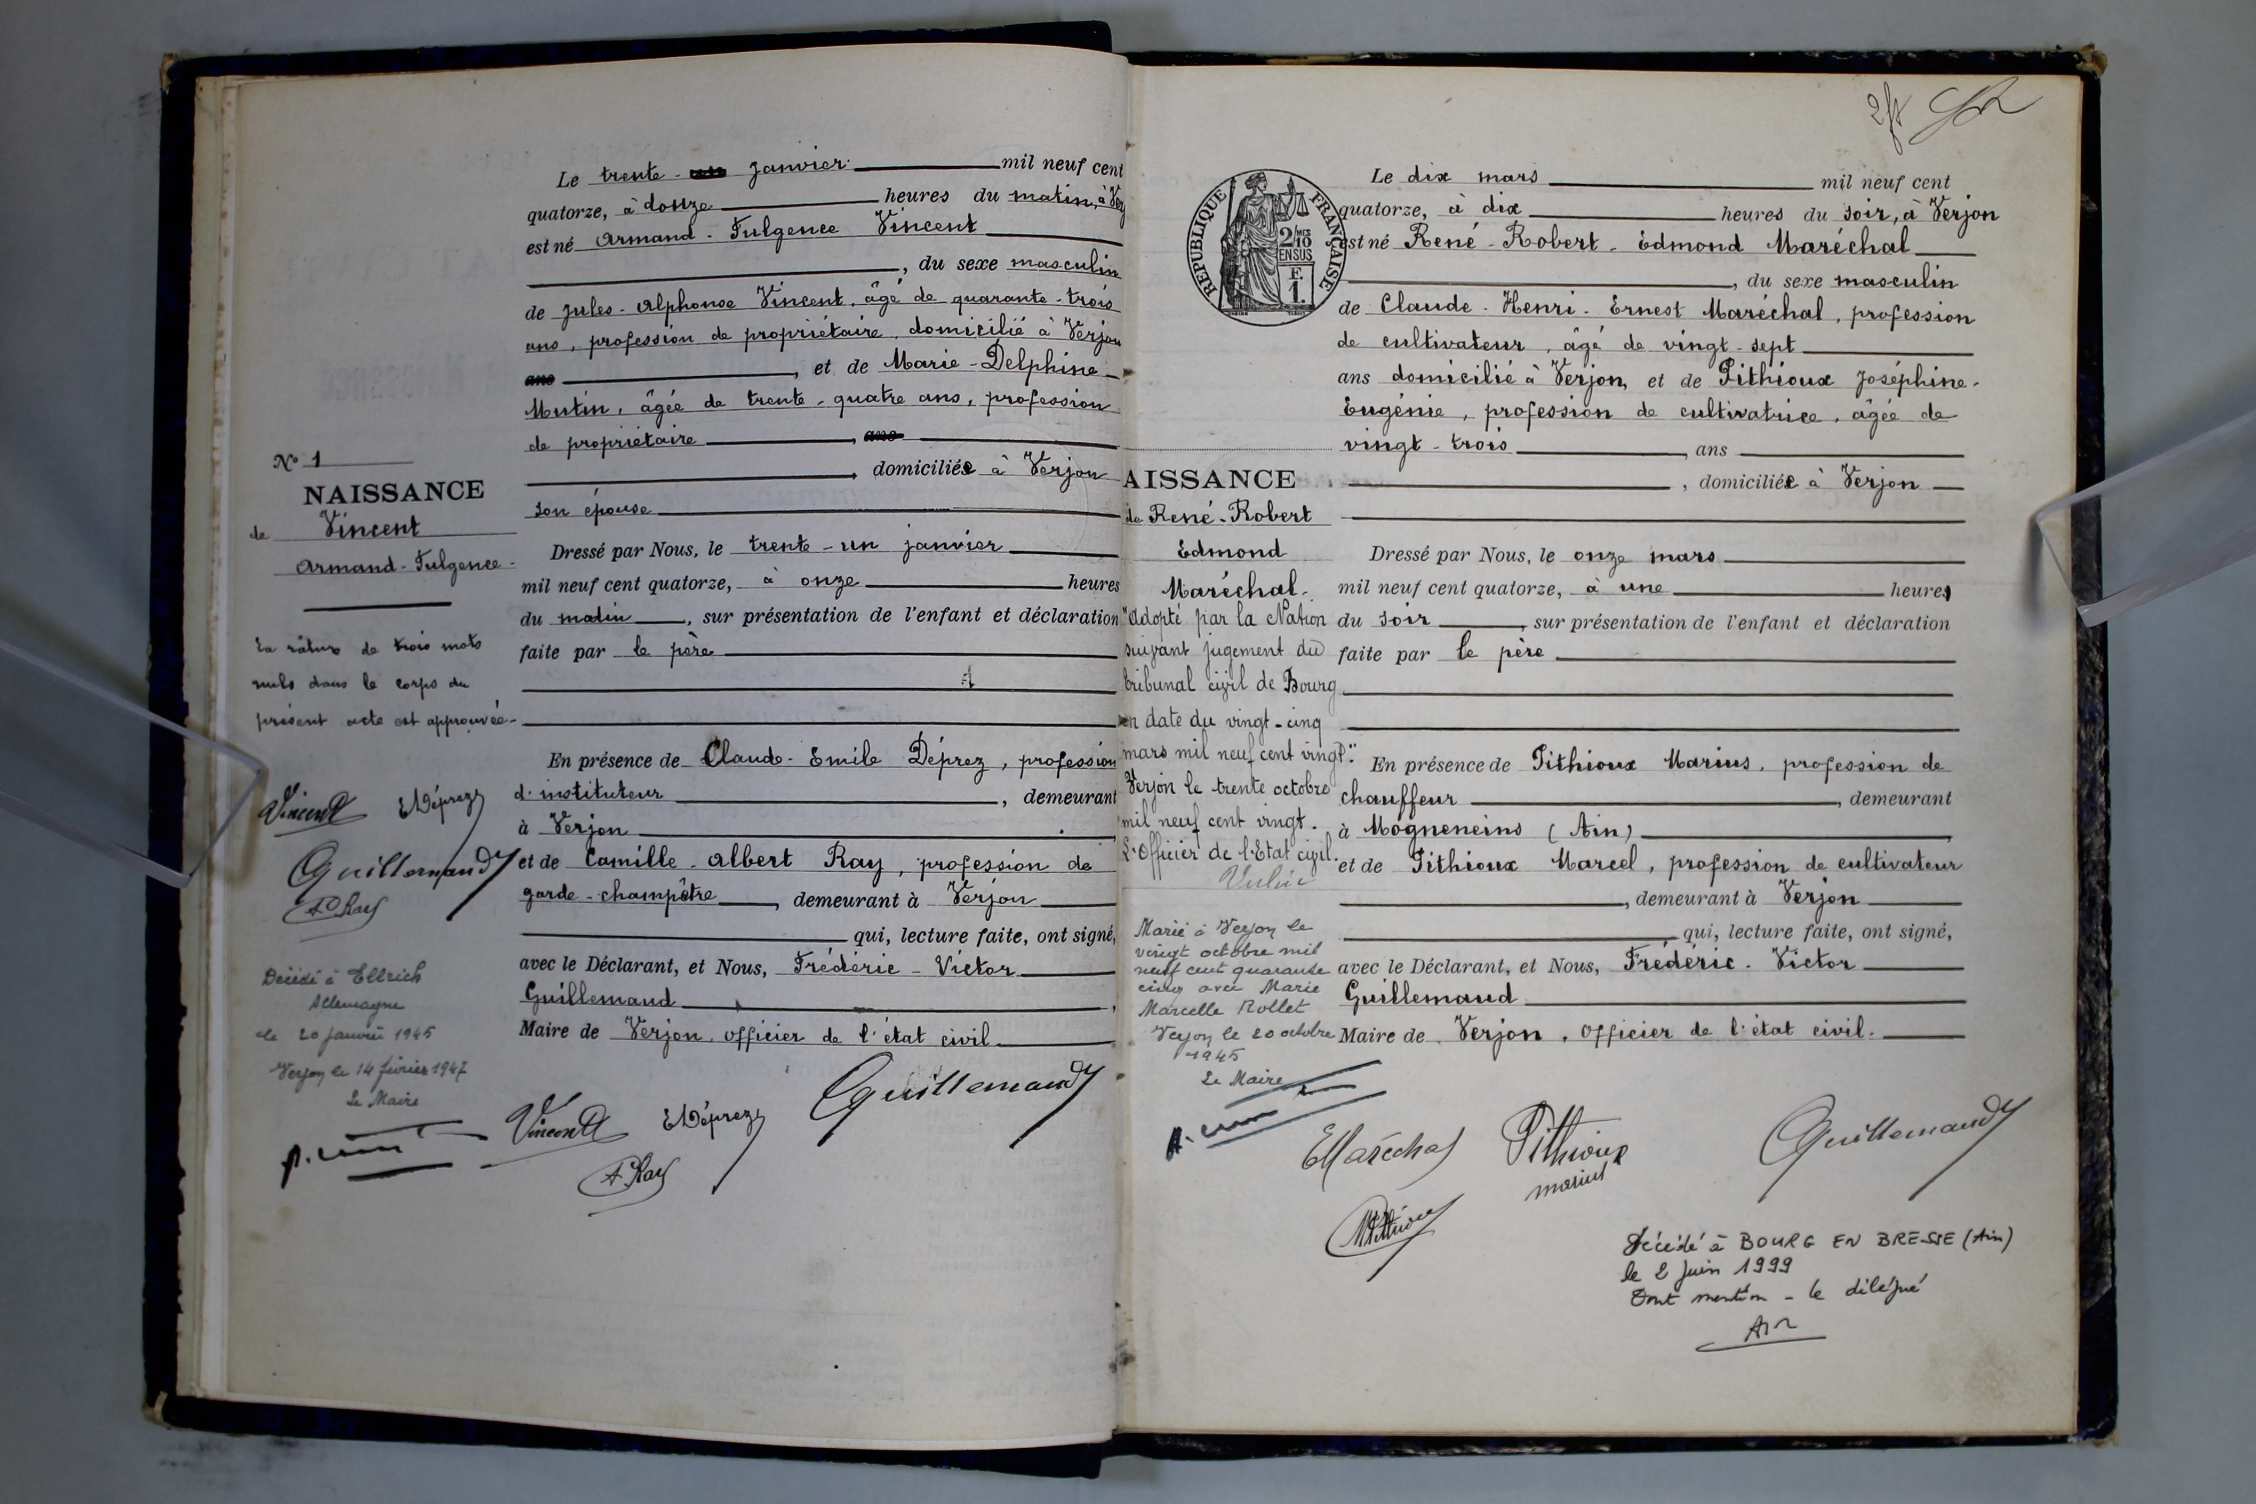 Le trente - un janvier mil neuf cent
quatorze, à douze heures du matin, à Verj
est né Armand - Fulgence Vincent
, du sexe masculin
de Jules - Alphonse Vincent, âgé de quarante - trois
ans, profession de propriétaire, domicilié à Verjon
ans, et de Marie - Delphine
Mutin, âgée de trente - quatre ans, profession
de propriétaire, ans
, domiciliée à Verjon
son épouse
Dressé par Nous, le trente - un janvier
mil neuf cent quatorze, à onze heures
du matin, sur présentation de l'enfant et déclaration
faite par le père
En présence de Claude - Emile Déprez, profession
d'instituteur, demeurant
à Verjon,
et de Camille - Albert Ray, profession de
garde - champêtre, demeurant à Verjon
qui, lecture faite, ont signé,
avec le Déclarant, et Nous, Frédéric - Victor
Guillemaud,
Maire de Verjon, officier de l'état civil
N° 1
NAISSANCE
de Vincent
Armand - Fulgence -
La rature de trois mots
nuls dans le corps du
présent acte est approuvée -
Vincent EDéprez
Guillemaud
ACRay
Décédé à Ellrich
Allemagne
le 20 janvier 1945
Verjon le 14 février 1947
Le Maire
Vincent EDéprez Guillemaud
ACRay
2f
REPUBLIQUE FRANÇAISE
2/10 MES
EN SUS
F.
1.
Le dix mars mil neuf cent
quatorze, à dix heures du soir, à Verjon
est né René - Robert - Edmond Maréchal
, du sexe masculin
de Claude - Henri - Ernest Maréchal, profession
de cultivateur, âgé de vingt - sept
ans domicilié à Verjon, et de Pithioux Joséphine -
Eugénie, profession de cultivatrice, âgée de
vingt - trois, ans
, domiciliée à Verjon
Dressé par Nous, le onze mars
mil neuf cent quatorze, à une heures
du soir, sur présentation de l'enfant et déclaration
faite par le père
En présence de Pithioux Marius, profession de
chauffeur, demeurant
à Mogneneins (Ain),
et de Pithioux Marcel, profession de cultivateur
, demeurant à Verjon
qui, lecture faite, ont signé,
avec le Déclarant, et Nous, Frédéric - Victor
Guillemaud
Maire de Verjon, officier de l'état civil.
AISSANCE
de René - Robert
Edmond
Maréchal.
"Adopté par la Nation
suivant jugement du
tribunal civil de Bourg
en date du vingt - cinq
mars mil neuf cent vingt."
Verjon le trente octobre
mil neuf cent vingt.
L'Officier de l'Etat civil.
Marié à Verjon le
vingt octobre mil
neuf cent quarante
cinq avec Marie
Marcelle Rollet
Verjon le 20 octobre
1945
Le Maire
EMaréchal Pithioux Guillemaud
marius
MPithioux
Décédé à BOURG EN BRESSE (Ain)
le 2 juin 1999
Dont mention - le délégué